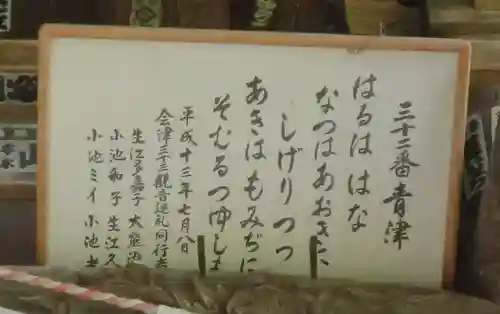 三十二番青津
はるは はな
なつはあおきに
しげりつつ
あきはもみぢに
そむるつゆしも
平成十三年七月八日
会津三十三観音巡礼同行者
生江多嘉子 大竜
小池和子 生江久
小池ミイ 小池